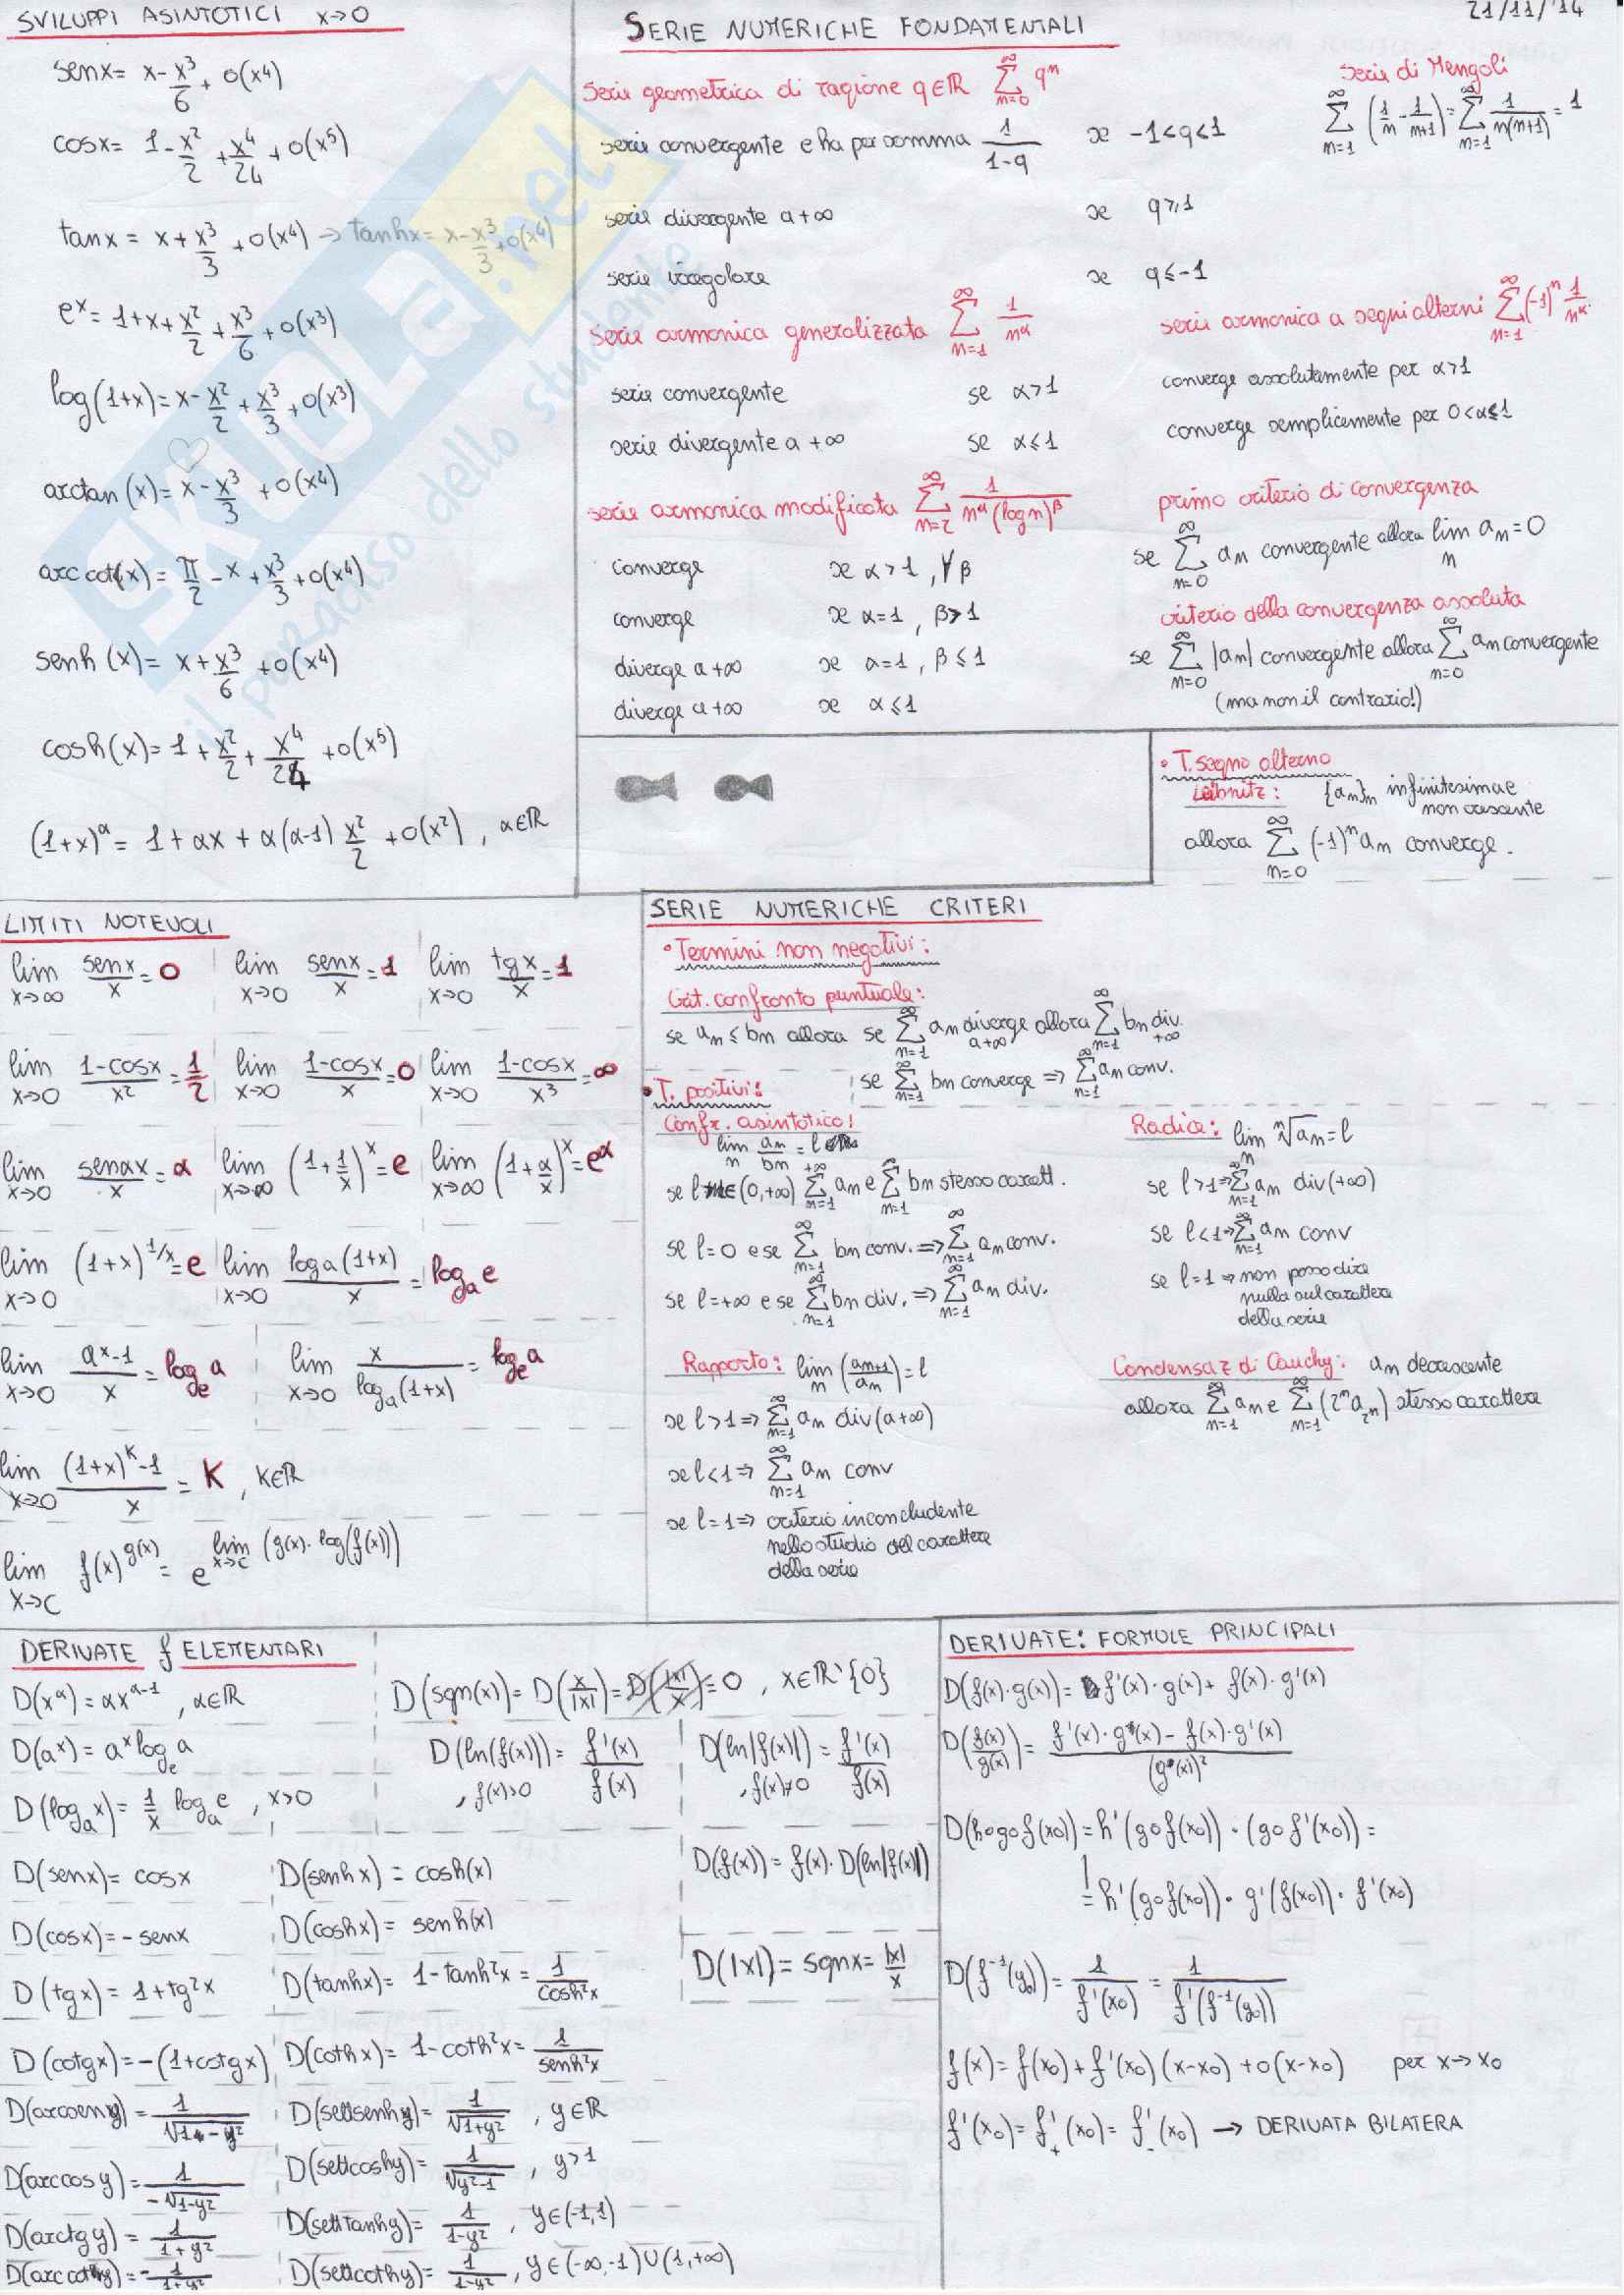 21/11/'14
SVILUPPI ASINTOTICI x→0
senx = x - x³/6 + o(x⁴)
cosx = 1 - x²/2 + x⁴/24 + o(x⁵)
tanx = x + x³/3 + o(x⁴) → tanhx = x - x³/3 + o(x⁴)
eˣ = 1 + x + x²/2 + x³/6 + o(x³)
log(1+x) = x - x²/2 + x³/3 + o(x³)
arctan(x) = x - x³/3 + o(x⁴)
arccot(x) = π/2 - x + x³/3 + o(x⁴)
senh(x) = x + x³/6 + o(x⁴)
cosh(x) = 1 + x²/2 + x⁴/24 + o(x⁵)
(1+x)^α = 1 + αx + α(α-1) x²/2 + o(x²), α∈ℝ
SKUOLA.net
il paradiso dello studente
SERIE NUMERICHE FONDAMENTALI
serie geometrica di ragione q∈ℝ ∑_{n=0}^∞ qⁿ
serie convergente e ha per somma 1/(1-q) se -1<q<1
serie divergente a +∞ se q≥1
serie irregolare se q≤-1
Serie di Mengoli
∑_{n=1}^∞ (1/n - 1/(n+1)) = ∑_{n=1}^∞ 1/(n(n+1)) = 1
serie armonica generalizzata ∑_{n=1}^∞ 1/n^α
serie convergente se α>1
serie divergente a +∞ se α≤1
serie armonica a segni alterni ∑_{n=1}^∞ (-1)ⁿ 1/n^α
converge assolutamente per α>1
converge semplicemente per 0<α≤1
serie armonica modificata ∑_{n=2}^∞ 1/(n^α (log n)^β)
converge se α>1, ∀β
converge se α=1, β>1
diverge a +∞ se α=1, β≤1
diverge a +∞ se α≤1
primo criterio di convergenza
se ∑_{n=0}^∞ aₙ convergente allora lim_n aₙ = 0
criterio della convergenza assoluta
se ∑_{n=0}^∞ |aₙ| convergente allora ∑_{n=0}^∞ aₙ convergente
(ma non il contrario!)
• T. segno alterno
Leibnitz: {aₙ}ₙ infinitesima e
non crescente
allora ∑_{n=0}^∞ (-1)ⁿ aₙ converge.
LIMITI NOTEVOLI
lim_{x→∞} senx/x = 0
lim_{x→0} senx/x = 1
lim_{x→0} tgx/x = 1
lim_{x→0} (1-cosx)/x² = 1/2
lim_{x→0} (1-cosx)/x = 0
lim_{x→0} (1-cosx)/x³ = ∞
lim_{x→0} senαx/x = α
lim_{x→∞} (1+1/x)^x = e
lim_{x→∞} (1+α/x)^x = e^α
lim_{x→0} (1+x)^{1/x} = e
lim_{x→0} loga(1+x)/x = log_a e
lim_{x→0} (aˣ-1)/x = log_e a
lim_{x→0} x/log_a(1+x) = log_e a
lim_{x→0} ((1+x)^K - 1)/x = K, K∈ℝ
lim_{x→c} f(x)^{g(x)} = e^{lim_{x→c} (g(x)·log(f(x)))}
SERIE NUMERICHE CRITERI
• Termini non negativi:
Crit. confronto puntuale:
se aₙ≤bₙ allora se ∑_{n=1}^∞ aₙ diverge a+∞ allora ∑_{n=1}^∞ bₙ div. +∞
se ∑_{n=1}^∞ bₙ converge ⇒ ∑_{n=1}^∞ aₙ conv.
• T. positivi:
Confr. asintotico:
lim_n aₙ/bₙ = l
se l∈(0,+∞) ∑_{n=1}^{+∞} aₙ e ∑_{n=1}^∞ bₙ stesso caratt.
se l=0 e se ∑_{n=1}^∞ bₙ conv. ⇒ ∑_{n=1}^∞ aₙ conv.
se l=+∞ e se ∑_{n=1}^∞ bₙ div. ⇒ ∑_{n=1}^∞ aₙ div.
Radice: lim_n ⁿ√aₙ = l
se l>1 ⇒ ∑_{n=1}^∞ aₙ div(+∞)
se l<1 ⇒ ∑_{n=1}^∞ aₙ conv
se l=1 ⇒ non posso dire
nulla sul carattere
della serie
Rapporto: lim_n (aₙ₊₁/aₙ) = l
se l>1 ⇒ ∑_{n=1}^∞ aₙ div(a+∞)
se l<1 ⇒ ∑_{n=1}^∞ aₙ conv
se l=1 ⇒ criterio inconcludente
nello studio del carattere
della serie
Condensaz di Cauchy: aₙ decrescente
allora ∑_{n=1}^∞ aₙ e ∑_{n=1}^∞ (2ⁿ a_{2ⁿ}) stesso carattere
DERIVATE f ELEMENTARI
D(x^α) = αx^{α-1}, α∈ℝ
D(aˣ) = aˣ log_e a
D(log_a x) = 1/x log_a e, x>0
D(senx) = cosx
D(cosx) = -senx
D(tgx) = 1+tg²x
D(cotgx) = -(1+cotgx)
D(arcsen y) = 1/√(1-y²)
D(arccos y) = 1/-√(1-y²)
D(arctg y) = 1/(1+y²)
D(arccot y) = -1/(1+y²)
D(sgn(x)) = D(x/|x|) = D(|x|/x) = 0, x∈ℝ\{0}
D(ln(f(x))) = f'(x)/f(x), f(x)>0
D(ln|f(x)|) = f'(x)/f(x), f(x)≠0
D(senhx) = cosh(x)
D(coshx) = senh(x)
D(tanhx) = 1-tanh²x = 1/cosh²x
D(cothx) = 1-coth²x = 1/senh²x
D(settsenh y) = 1/√(1+y²), y∈ℝ
D(settcosh y) = 1/√(y²-1), y>1
D(setttanh y) = 1/(1-y²), y∈(-1,1)
D(settcoth y) = 1/(1-y²), y∈(-∞,-1)∪(1,+∞)
D(f(x)) = f(x)·D(ln|f(x)|)
D(|x|) = sgnx = |x|/x
DERIVATE: FORMULE PRINCIPALI
D(f(x)·g(x)) = f'(x)·g(x) + f(x)·g'(x)
D(f(x)/g(x)) = (f'(x)·g(x) - f(x)·g'(x))/(g(x))²
D(h∘g∘f(x₀)) = h'(g∘f(x₀))·(g∘f'(x₀)) =
= h'(g∘f(x₀))·g'(f(x₀))·f'(x₀)
D(f⁻¹(y₀)) = 1/f'(x₀) = 1/f'(f⁻¹(y₀))
f(x) = f(x₀) + f'(x₀)(x-x₀) + o(x-x₀) per x→x₀
f'(x₀) = f'₊(x₀) = f'₋(x₀) → DERIVATA BILATERA